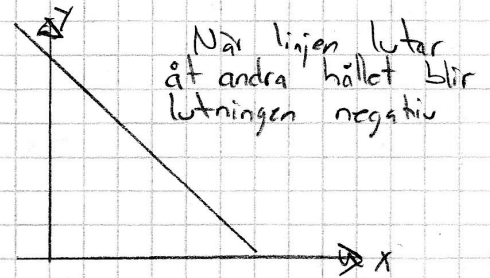 y
När linjen lutar
åt andra hållet blir
lutningen negativ
x